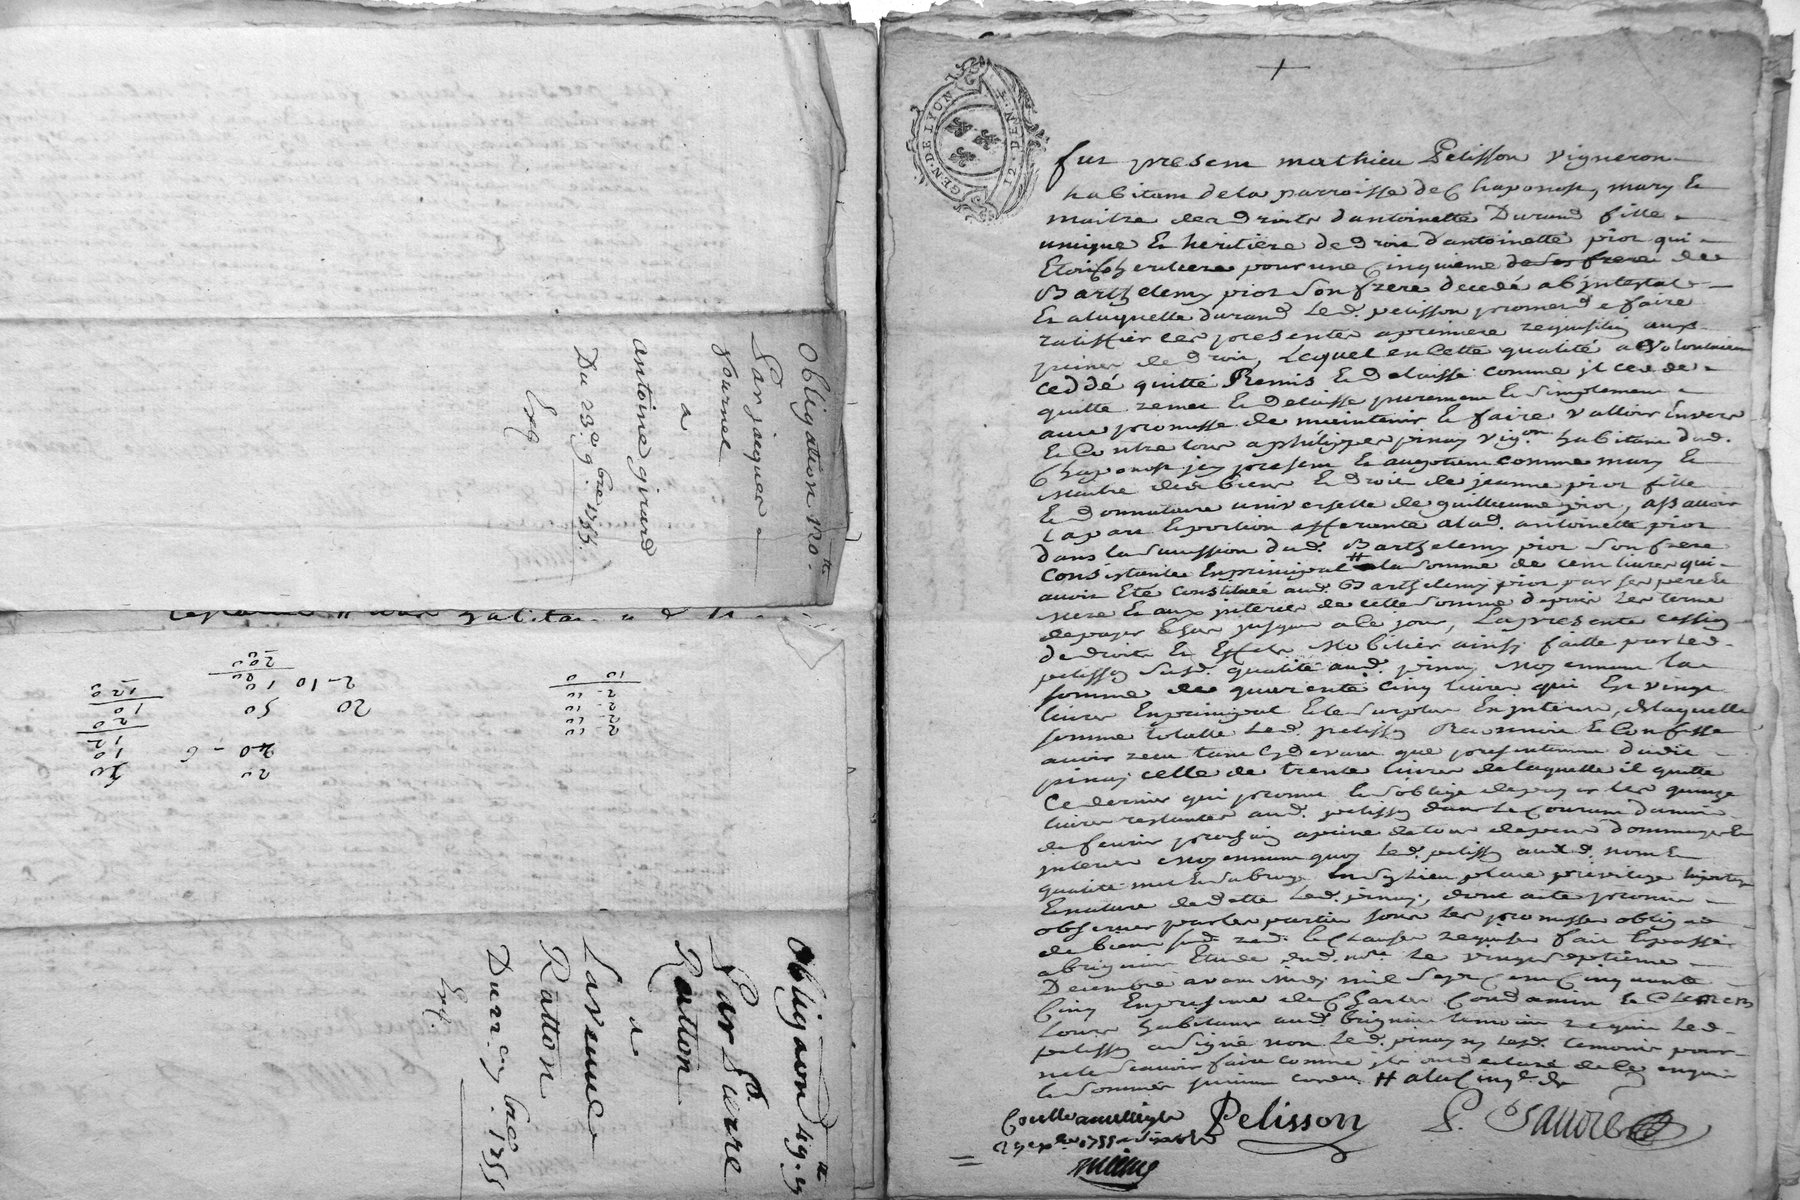 Obligation 120.tt
Par jacques
fournel
a
antoine girard
Du 23.e 9.bre 1755.
Exp.
20
10
12
20
10
120
20
40 - 6
50
20
2-10
10
200
2-10
2-10
2-10
2-10
10 0
Obligaon 49.tt 19
Par Pierre
Ratton
a
Laveuue
Ratton
Du 11.e xbre 1755
Exp.
GEN. DE LYON 12. DEN.
fut present mathieu Pelisson vigneron
habitant de la parroisse de Chaponost, mary et
maitre des droits d'antoinette Durand fille
unique et heritiere de droit d'antoinette pior qui
Etoit heritiere pour une Cinquieme de ses frere de
Barthelemy pior son frere decedé abjntestat
Et a laquelle durand led. pelisson promet de faire
ratiffier ces presentes a premiere requisition aux
peines de droit, Lequel en Cette qualité a volontairem
ceddé quitté Remis Et delaissé comme jl cede
quitte remet Et delaisse purement Et simplement
avec promesse de maintenir Et faire valloir Envers
Et Contre tous a philippe pinay vig.on habitant dud.
Chaponost jcy present Et acceptant comme mary Et
Maitre des biens Et droits de jeanne pior fille
Et donnataire universelle de guillaume pior, assavoir
La part Et portion afferente a lad. antoinette pior
dans la succession dud. Barthelemy pior son frere
Consistante En principal # la somme de cent livres qui
avoit Eté Constituée aud. Barthelemy pior par ses pere Et
Mere Et aux jnterets de cette somme depuis les terme
de payer Echus jusques a Ce jour, La presente cession
de droits Et Effets Mobilier ainsy faitte par led.
pelisson susd. qualité aud. pinay Moyennant la
somme de quarente cinq livres qui Est vingt
livres En principal Et le surplus En jnterets, de laquelle
somme totalle led. pelisson Reconnoit Et Confesse
avoir receu tant Cydevant que presentement dudit
pinay celle de trente livres de laquelle il quitte
Ce dernier qui promet Et s'oblige de payer les quinze
livres restantes aud. pelisson dans le Courant du mois
de fevrier prochain a peine de tous depens dommages Et
jnterets Moyennant quoy led. pelisson aud. nom Et
qualité met Et subroge En son lieu place privilege hipoteque
Et nature de dette led. pinay, dont acte promis
observer par les parties sous les promesses oblig.on
de biens sud. ren.on Et Clauses requises fait Et passé
a brignais Etude dud. n.re le vingt septieme
Decembre avant midy mil sept Cent Cinquante
Cinq En presence de Charles Condamin Et Clement
Louis habitants aud. brignais temoins requis led.
pelisson a signé non led. pinay ny lesd. temoins pour
ne le scavoir faire comme jls ont declaré de ce enquis
Et sommés # a la Cinq.e de
Pelisson